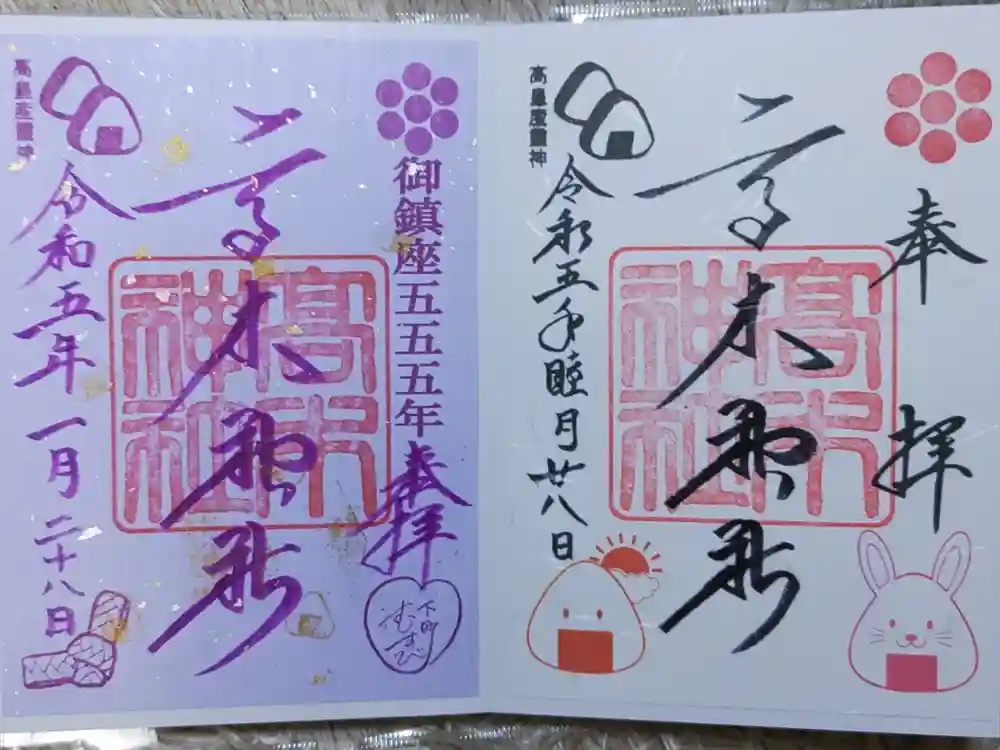 奉拝
高木神社
高木神社
令和五年睦月廿八日
高皇産霊神
御鎮座五五五年奉拝
下町
むすび
高木神社
高木神社
令和五年一月二十八日
高皇産霊神